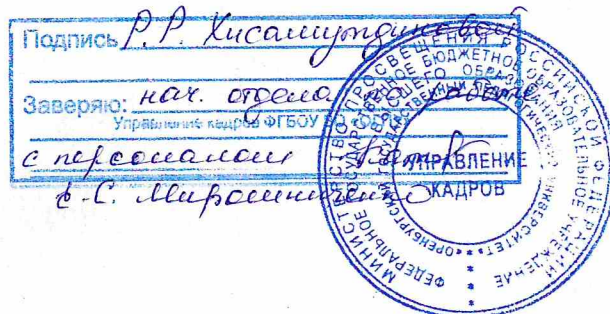 Подпись Р.Р. Хисамутдиновой
Заверяю: нач. отдела
Управление кадров ФГБОУ ВО
с персоналом
Е.С. Мирошниченко
УПРАВЛЕНИЕ
КАДРОВ
МИНИСТЕРСТВО ПРОСВЕЩЕНИЯ РОССИЙСКОЙ ФЕДЕРАЦИИ
ФЕДЕРАЛЬНОЕ ГОСУДАРСТВЕННОЕ БЮДЖЕТНОЕ ОБРАЗОВАТЕЛЬНОЕ УЧРЕЖДЕНИЕ
ВЫСШЕГО ОБРАЗОВАНИЯ
«ОРЕНБУРГСКИЙ ГОСУДАРСТВЕННЫЙ ПЕДАГОГИЧЕСКИЙ УНИВЕРСИТЕТ»